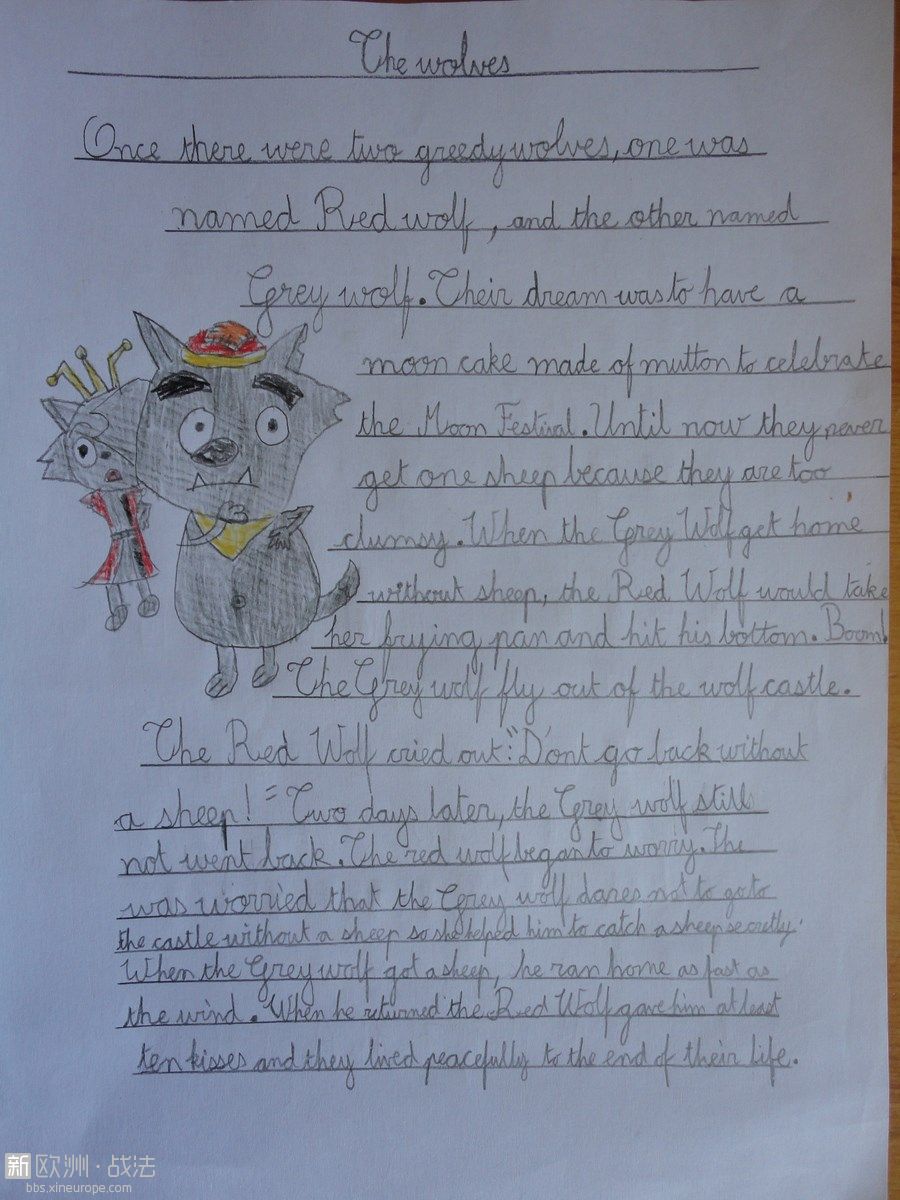 The wolves
Once there were two greedy wolves, one was
named Red wolf, and the other named
Grey wolf. Their dream was to have a
moon cake made of mutton to celebrate
the Moon Festival. Until now they never
get one sheep because they are too
clumsy. When the Grey Wolf get home
without sheep, the Red Wolf would take
her frying pan and hit his bottom. Boom!
The Grey wolf fly out of the wolf castle.
The Red Wolf cried out:"D'ont go back without
a sheep!" Two days later, the Grey wolf still
not went back. The red wolf began to worry. The
was worried that the Grey wolf dares not to go to
the castle without a sheep so she helped him to catch a sheep secretly.
When the Grey wolf got a sheep, he ran home as fast as
the wind. When he returned the Red Wolf gave him at least
ten kisses and they lived peacefully to the end of their life.
新欧洲·战法
bbs.xineurope.com